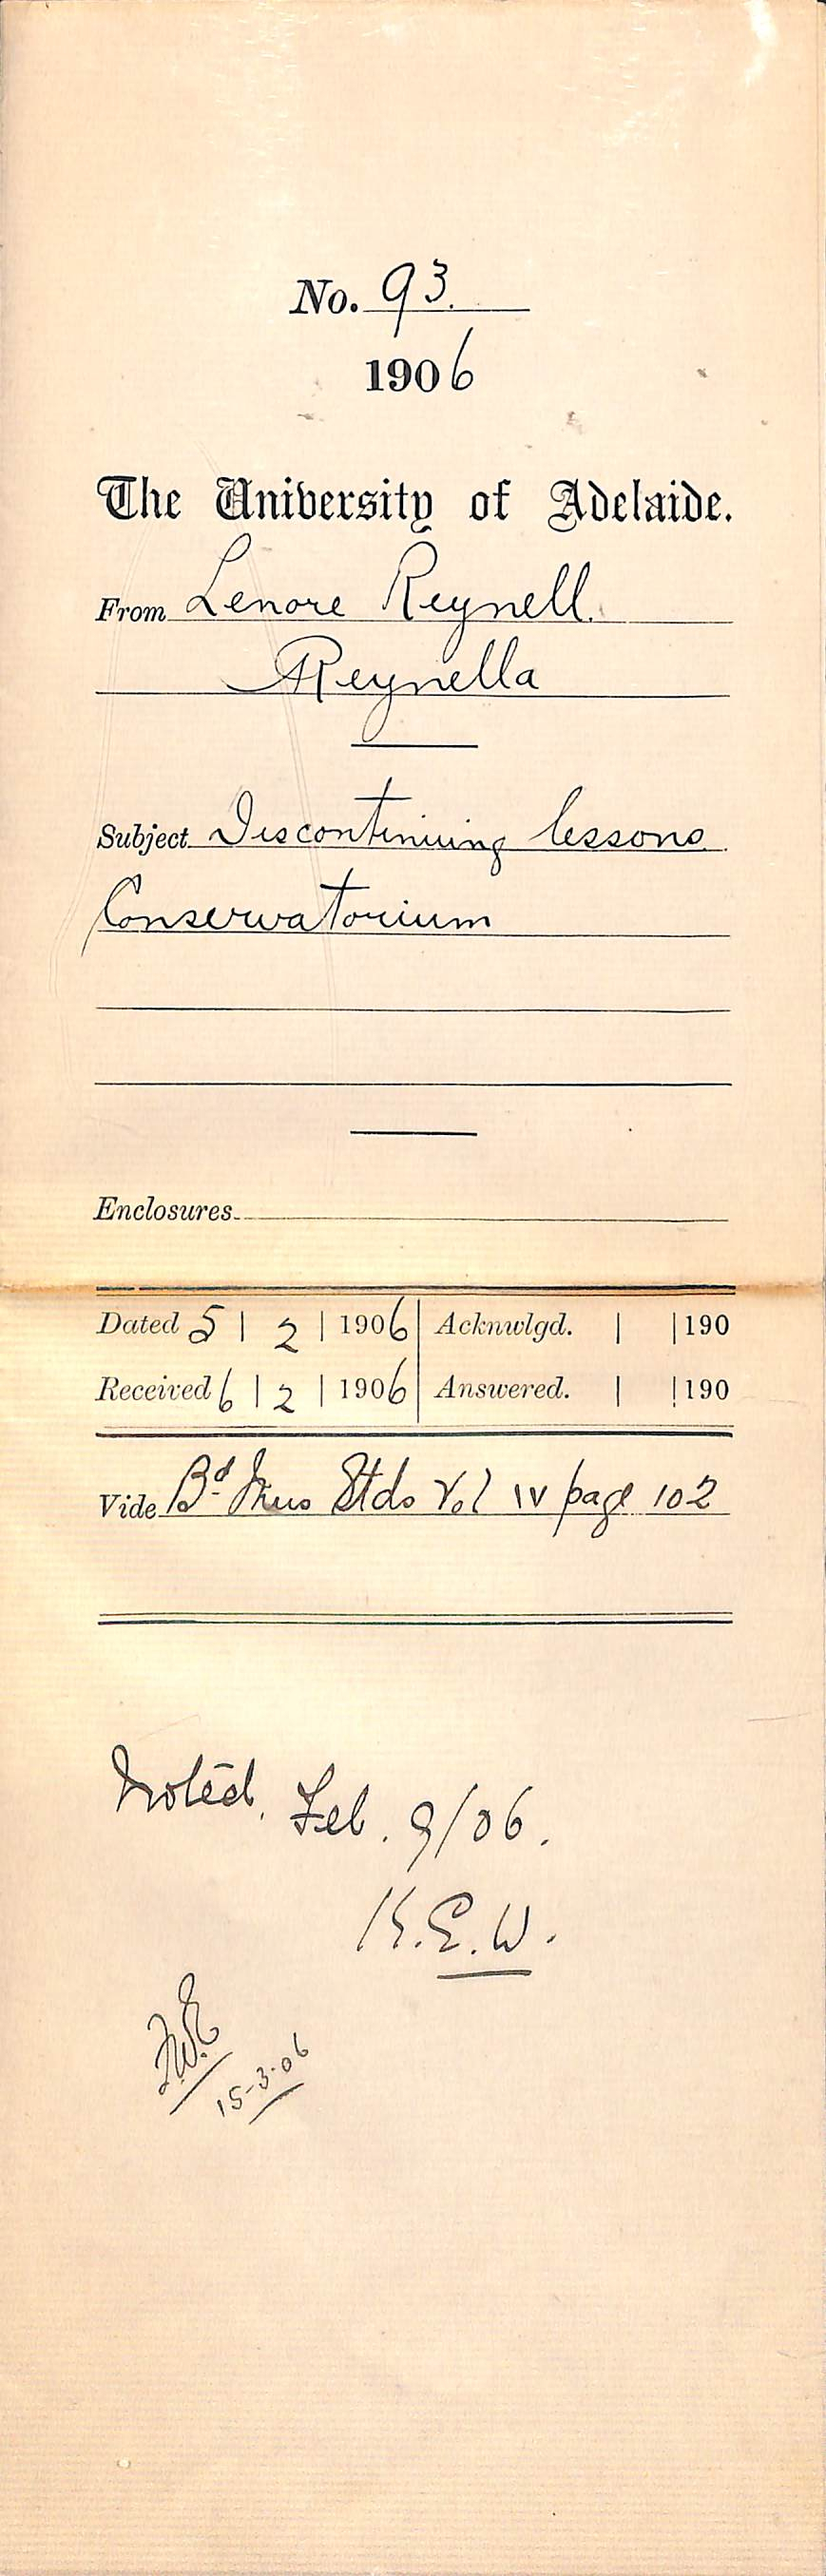 No. 93.
1906
The University of Adelaide.
From Lenore Reynell.
Reynella
Subject Discontinuing lessons
Conservatorium
Enclosures
Dated 5 | 2 | 1906 | Acknwlgd. | | 190
Received 6 | 2 | 1906 | Answered. | | 190
Vide Bd. Mus Stds Vol IV page 102
Noted. Feb. 9/06.
K.E.W.
15-3-06